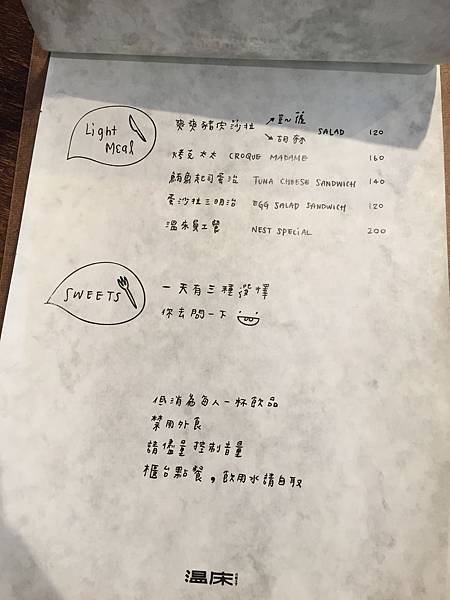 Light
Meal
爽爽豬皮沙拉 凱薩 SALAD 120
胡麻
烤克太太 CROQUE MADAME 160
鮪魚起司蛋治 TUNA CHEESE SANDWICH 140
蛋沙拉三明治 EGG SALAD SANDWICH 120
溫床員工餐 NEST SPECIAL 200
SWEETS
一天有三種選擇
你去問一下
低消為每人一杯飲品
禁用外食
請儘量控制音量
櫃台點餐，飲用水請自取
溫床